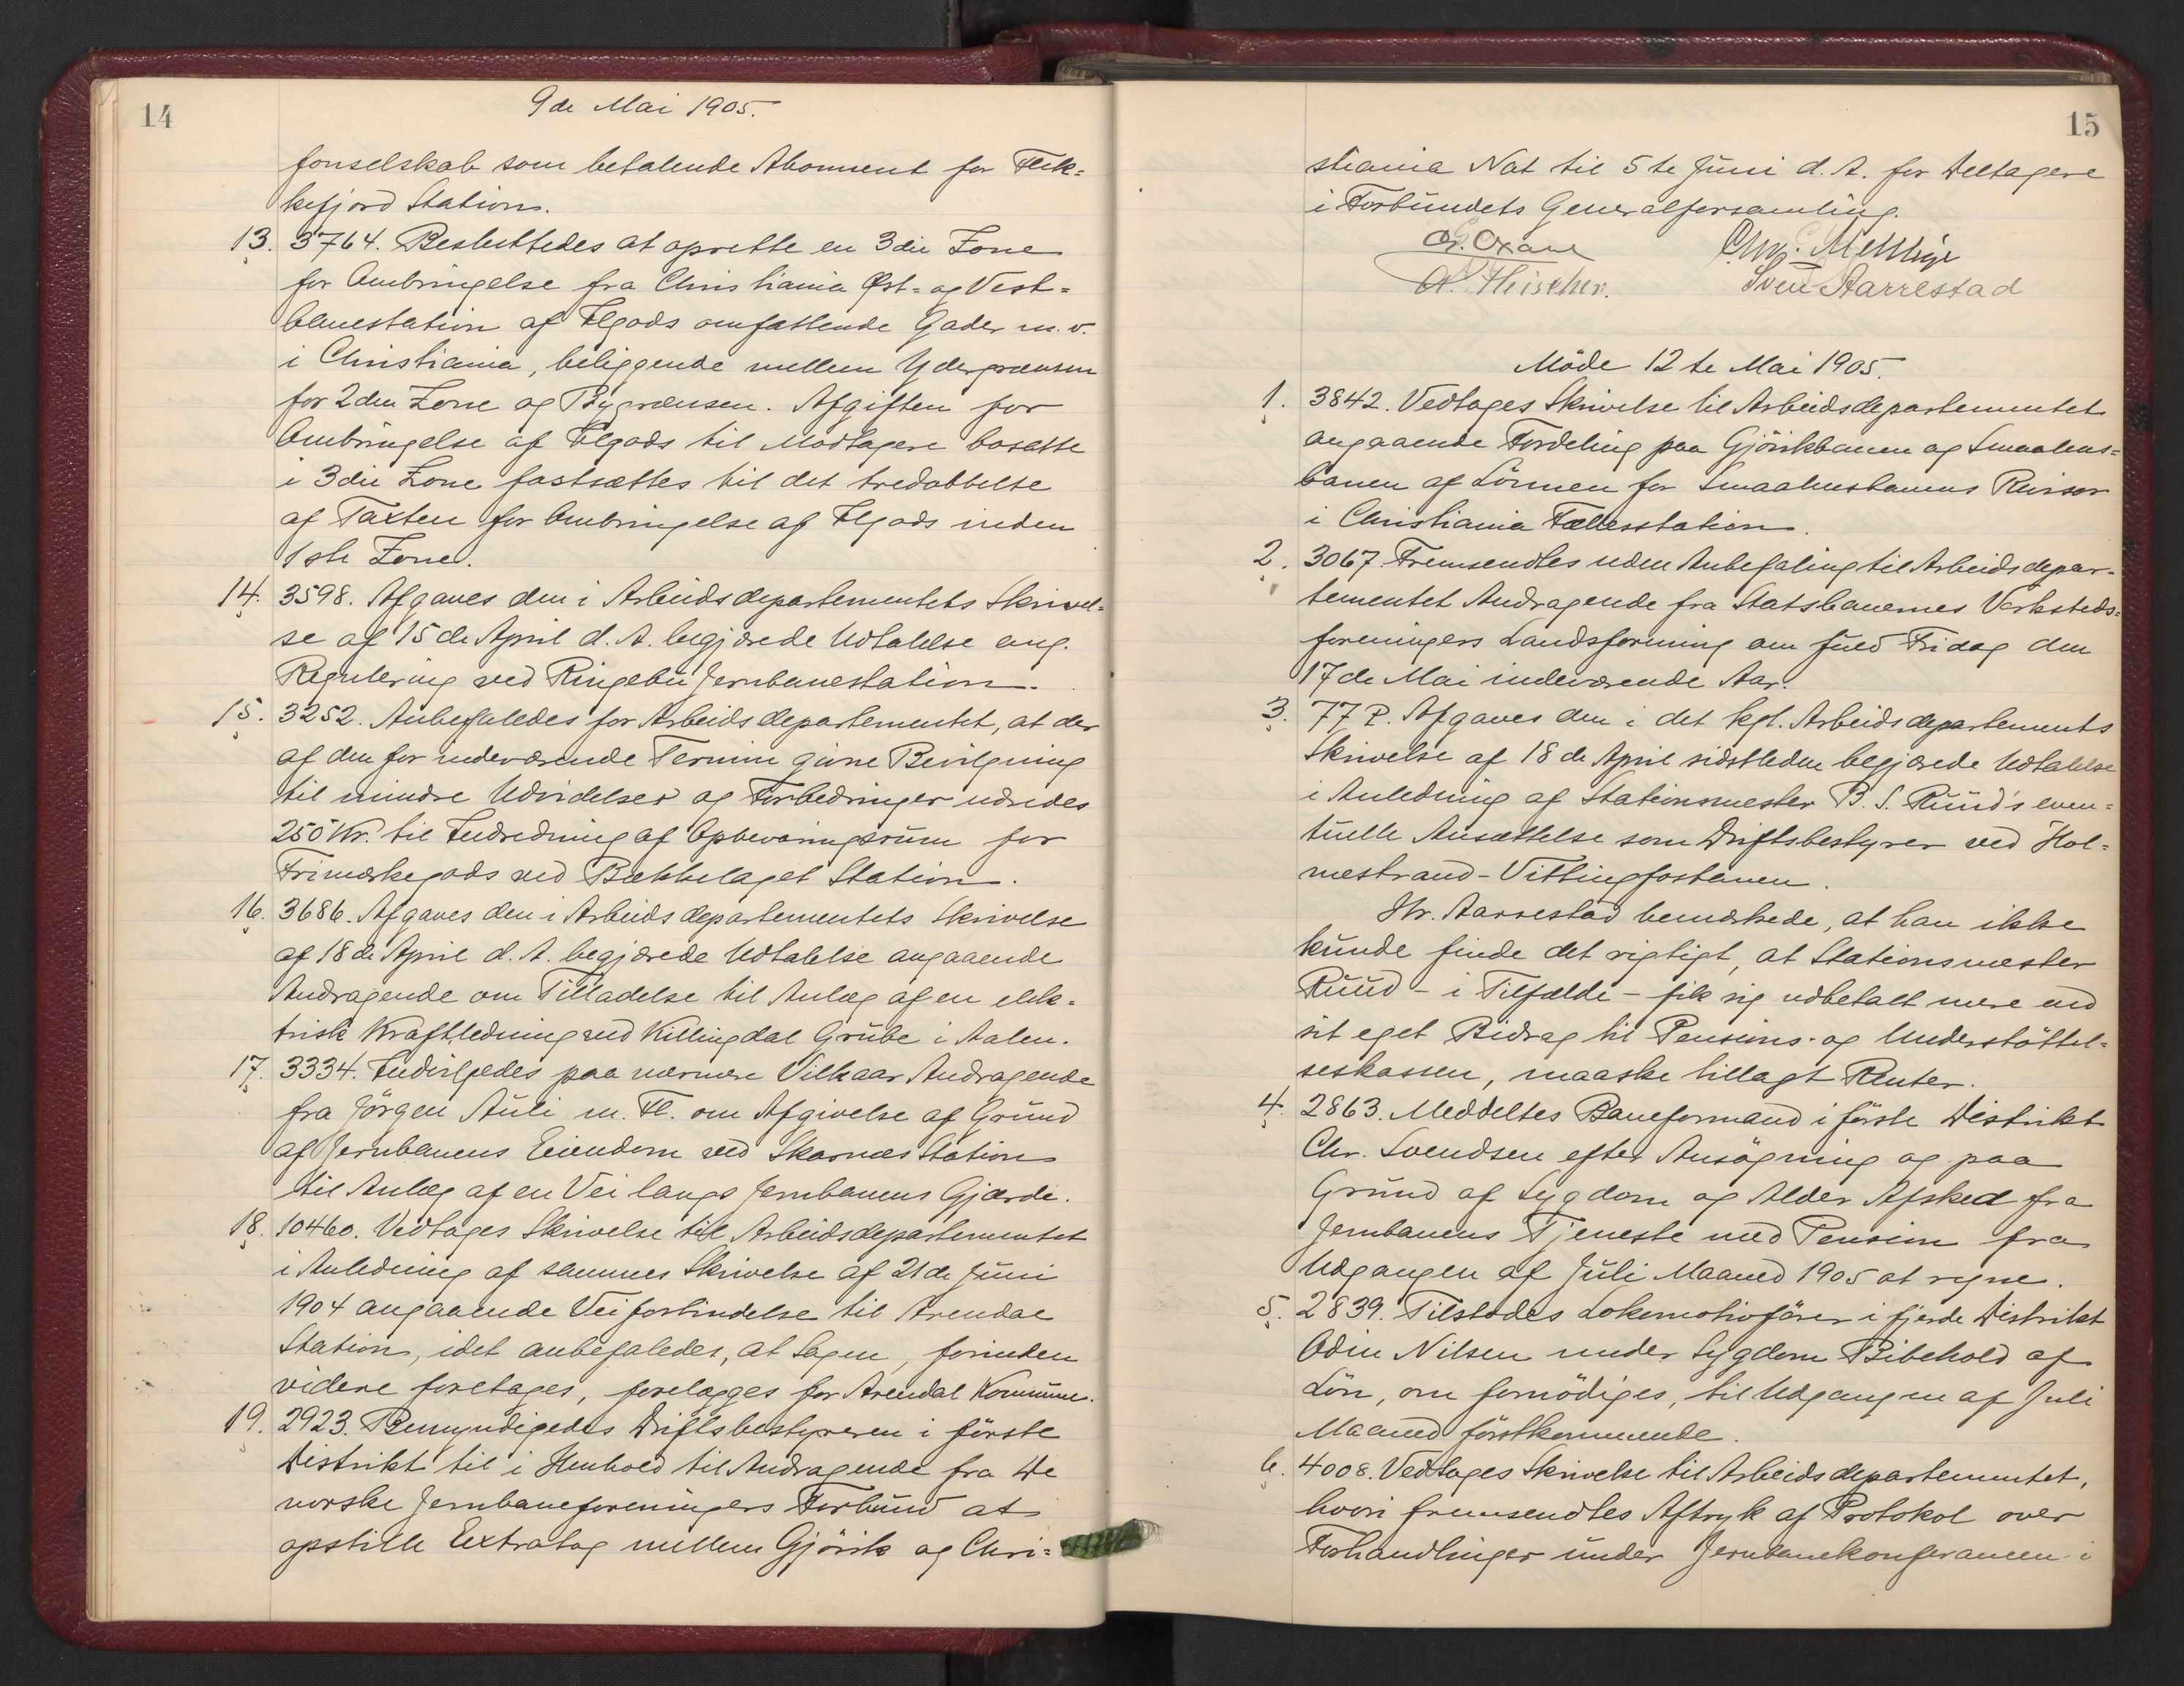 14
9de Mai 1905.
fonselskab som betalende Abonnent for Flek-
kefjord Station.
13. 3764. Besluttedes at oprette en 3die Zone
for Ombringelse fra Christiania Øst- og Vest-
banestation af Ilgods omfattende Gader m.v.
i Christiania, beliggende mellem Ydergrænsen
for 2den Zone og Bygrænsen. Afgiften for
Ombringelse af Ilgods til Modtagere bosatte
i 3die Zone fastsættes til det tredobbelte
af Taxten for Ombringelse af Ilgods inden
1ste Zone.
14. 3598. Afgaves den i Arbeidsdepartementets Skrivel-
se af 15de April d. A. begjærede Udtalelse ang.
Regulering ved Ringebu Jernbanestation.
15. 3252. Anbefaledes for Arbeidsdepartementet, at der
af den for indeværende Termin givne Bevilgning
til mindre Udvidelser og Forbedringer udredes
250 Kr. til Indredning af Opbevaringsrum for
Frimærkegods ved Bækkelaget Station.
16. 3686. Afgaves den i Arbeidsdepartementets Skrivelse
af 18de April d. A. begjærede Udtalelse angaaende
Andragende om Tilladelse til Anlæg af en elek-
trisk Kraftledning ved Killingdal Grube i Aalen.
17. 3334. Indvilgedes paa nærmere Vilkaar Andragende
fra Jörgen Auli m. Fl. om Afgivelse af Grund
af Jernbanens Eiendom ved Skarnæs Station
til Anlæg af en Vei langs Jernbanens Gjærde.
18. 10460. Vedtoges Skrivelse til Arbeidsdepartementet
i Anledning af sammes Skrivelse af 21de Juni
1904 angaaende Veiforbindelse til Arendal
Station, idet anbefaledes, at Sagen, forinden
videre foretages, forelægges for Arendal Kommune.
19. 2923. Bemyndigedes Driftsbestyreren i förste
Distrikt til i Henhold til Andragende fra De
norske Jernbaneforeningers Forbund at
opstille Extratog mellem Gjövik og Chri-
15
stiania Nat til 5te Juni d. A. for Deltagere
i Forbundets Generalforsamling.
Chr. Mellbye
Sven Aarrestad
Möde 12te Mai 1905.
1. 3842. Vedtoges Skrivelse til Arbeidsdepartementet
angaaende Fordeling paa Gjövikbanen og Smaalens-
banen af Lönnen for Smaalensbanens Revisor
i Christiania Fællesstation.
2. 3067. Fremsendtes uden Anbefaling til Arbeidsdepar-
tementet Andragende fra Statsbanernes Verksteds-
foreningers Landsforening om fuld Fridag den
17de Mai indeværende Aar.
3. 77 P. Afgaves den i det kgl. Arbeidsdepartements
Skrivelse af 18de April sidstleden begjærede Udtalelse
i Anledning af Stationsmester B. S. Ruud's even-
tuelle Ansættelse som Driftsbestyrer ved Hol-
mestrand-Vittingfosbanen.
Hr. Aarrestad bemærkede, at han ikke
kunde finde det rigtigt, at Stationsmester
Ruud - i Tilfælde - fik sig udbetalt mere end
sit eget Bidrag til Pensions- og Understöttel-
seskassen, maaske tillagt Renter.
4. 2863. Meddeltes Baneformand i förste Distrikt
Chr. Svendsen efter Ansögning og paa
Grund af Sygdom og Alder Afsked fra
Jernbanens Tjeneste med Pension fra
Udgangen af Juli Maaned 1905 at regne.
5. 2839. Tilstodes Lokomotivförer i fjerde Distrikt
Odin Nilsen under Sygdom Bibehold af
Lön, om fornödiges, til Udgangen af Juli
Maaned förstkommende.
6. 4008. Vedtoges Skrivelse til Arbeidsdepartementet,
hvori fremsendtes Aftryk af Protokol over
Forhandlinger under Jernbanekonferancen i